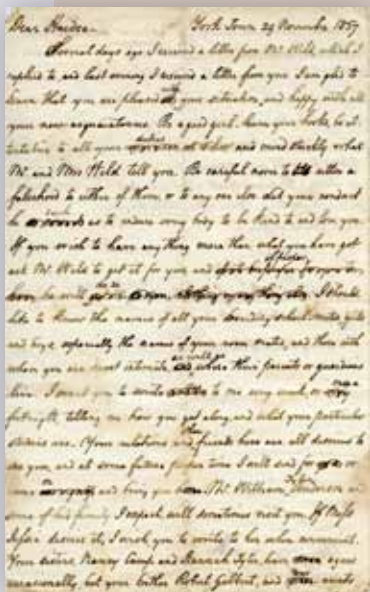 Dear Hardin York Town 29 November 1857
Several days ago I received a letter from Mr Wild, which I
replied to, and last evening I received a letter from you. I am glad to
learn that you are pleased with your situation, and happy with all
your new acquaintances. Be a good girl, learn your books, be at-
tentive to all your duties and mind strictly what
Mr and Mrs Wild tell you. Be careful never to utter a
falsehood to either of them, or to any one else but your conduct
be such as to induce every body to be kind to and love you.
If you wish to have any thing more than what you have got
ask Mr Wild to get it for you, and
he will do so I should
like to know the names of all your boarding school mates girls
and boys, especially the names of your room mates, and those with
whom you are most intimate, as well as where their parents or guardians
live. I want you to write to me every week, or once a
fortnight, telling me how you get along, and what your particular
studies are. Your relations and friends here are all desirous to
see you, and at some future proper time I will send for you, or
come and bring you home. Mr William Anderson and
some of his family I expect will sometimes visit you. If Miss
desires it, I wish you to write to her when convenient.
Your sisters Nancy Camp and Hannah Tyler, have
occasionally, but your brother Robert Gilbert, and